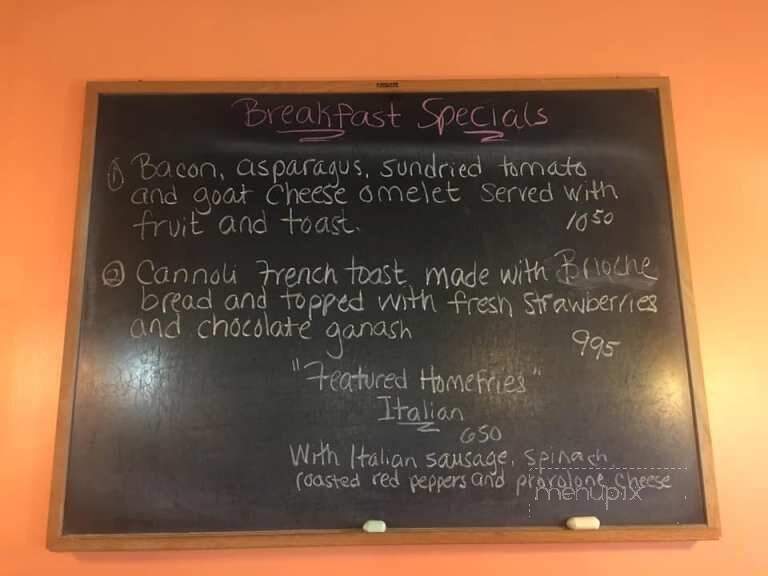 Breakfast Specials
① Bacon, asparagus, sundried tomato
and goat cheese omelet served with
fruit and toast. 1050
② Cannoli French toast made with Brioche
bread and topped with fresh strawberries
and chocolate ganash 995
"Featured Homefries"
Italian
650
With Italian sausage, spinach,
roasted red peppers and provolone cheese
menupix